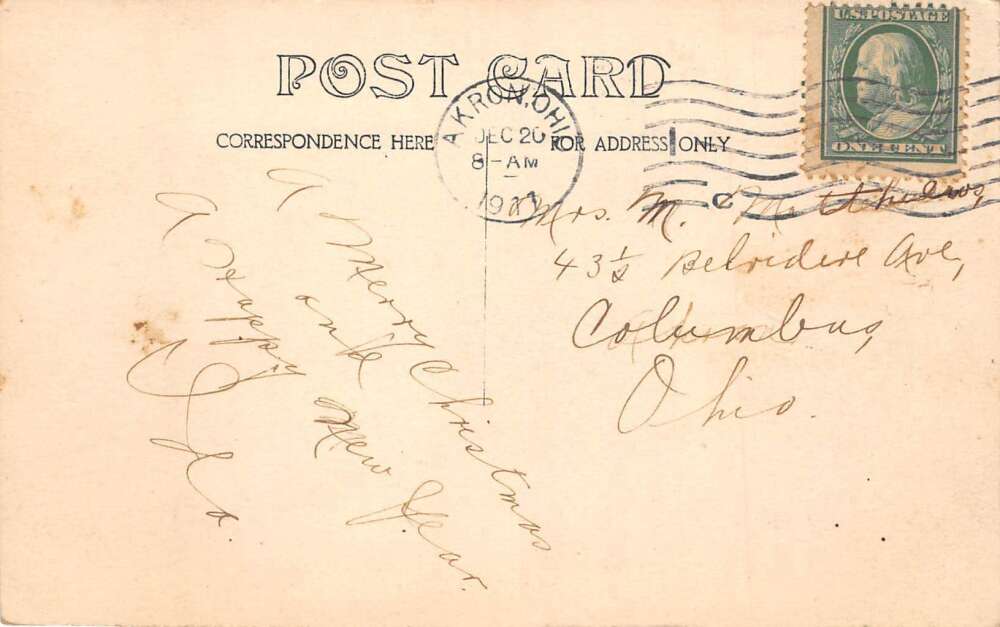 POST CARD
CORRESPONDENCE HERE
FOR ADDRESS ONLY
AKRON, OHIO
DEC 20
8-AM
U.S. POSTAGE
ONE CENT
Mrs. M.
43½ Belvidere Ave,
Columbus,
Ohio.
A Merry Christmas
and
A Happy New Year.
Ida